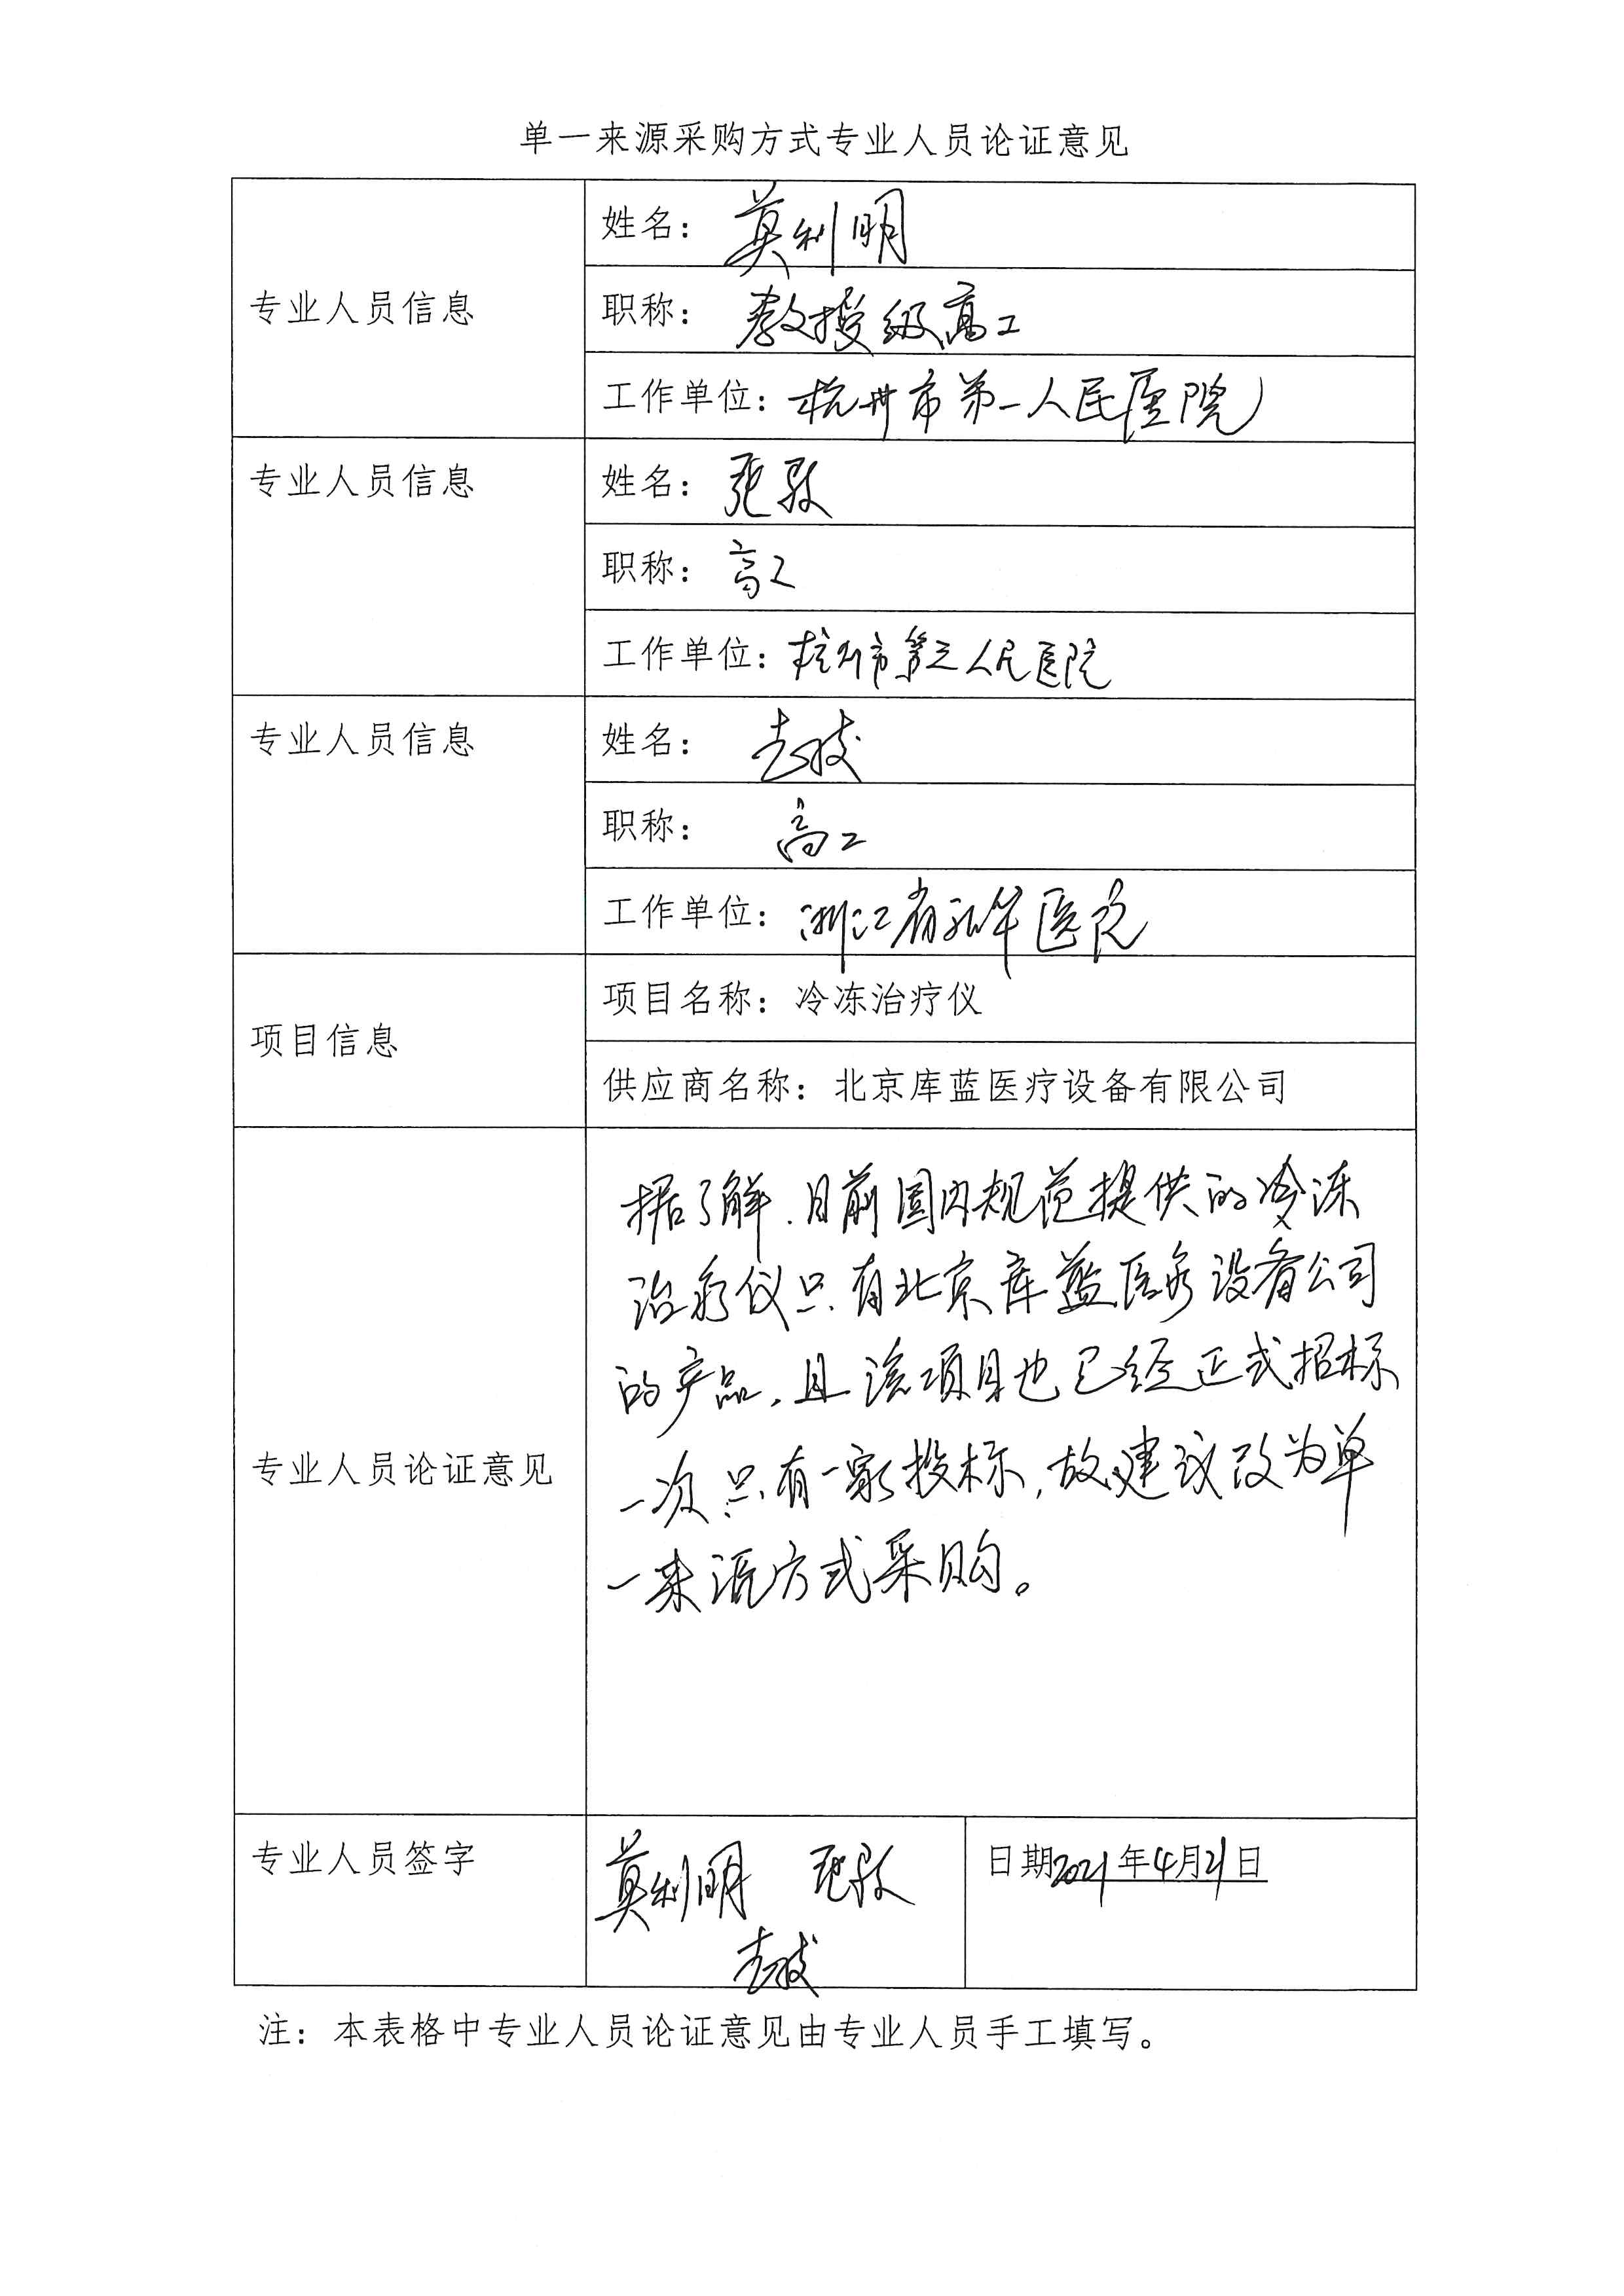 单一来源采购方式专业人员论证意见
专业人员信息
姓名：莫利明
职称：教授级高工
工作单位：杭州市第一人民医院
专业人员信息
姓名：张
职称：高工
工作单位：杭州市第三人民医院
专业人员信息
姓名：
职称：高工
工作单位：浙江省新华医院
项目信息
项目名称：冷冻治疗仪
供应商名称：北京库蓝医疗设备有限公司
专业人员论证意见
据了解，目前国内规范提供的冷冻
治疗仪只有北京库蓝医疗设备公司
的产品，且该项目也已经正式招标
一次只有一家投标，故建议改为单
一来源方式采购。
专业人员签字
莫利明 张
日期2021年4月21日
注：本表格中专业人员论证意见由专业人员手工填写。